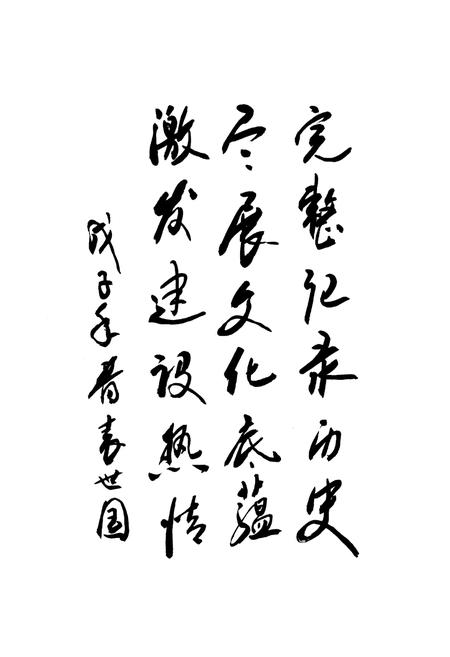 完整记录历史
尽展文化底蕴
激发建设热情
戊子年 世国